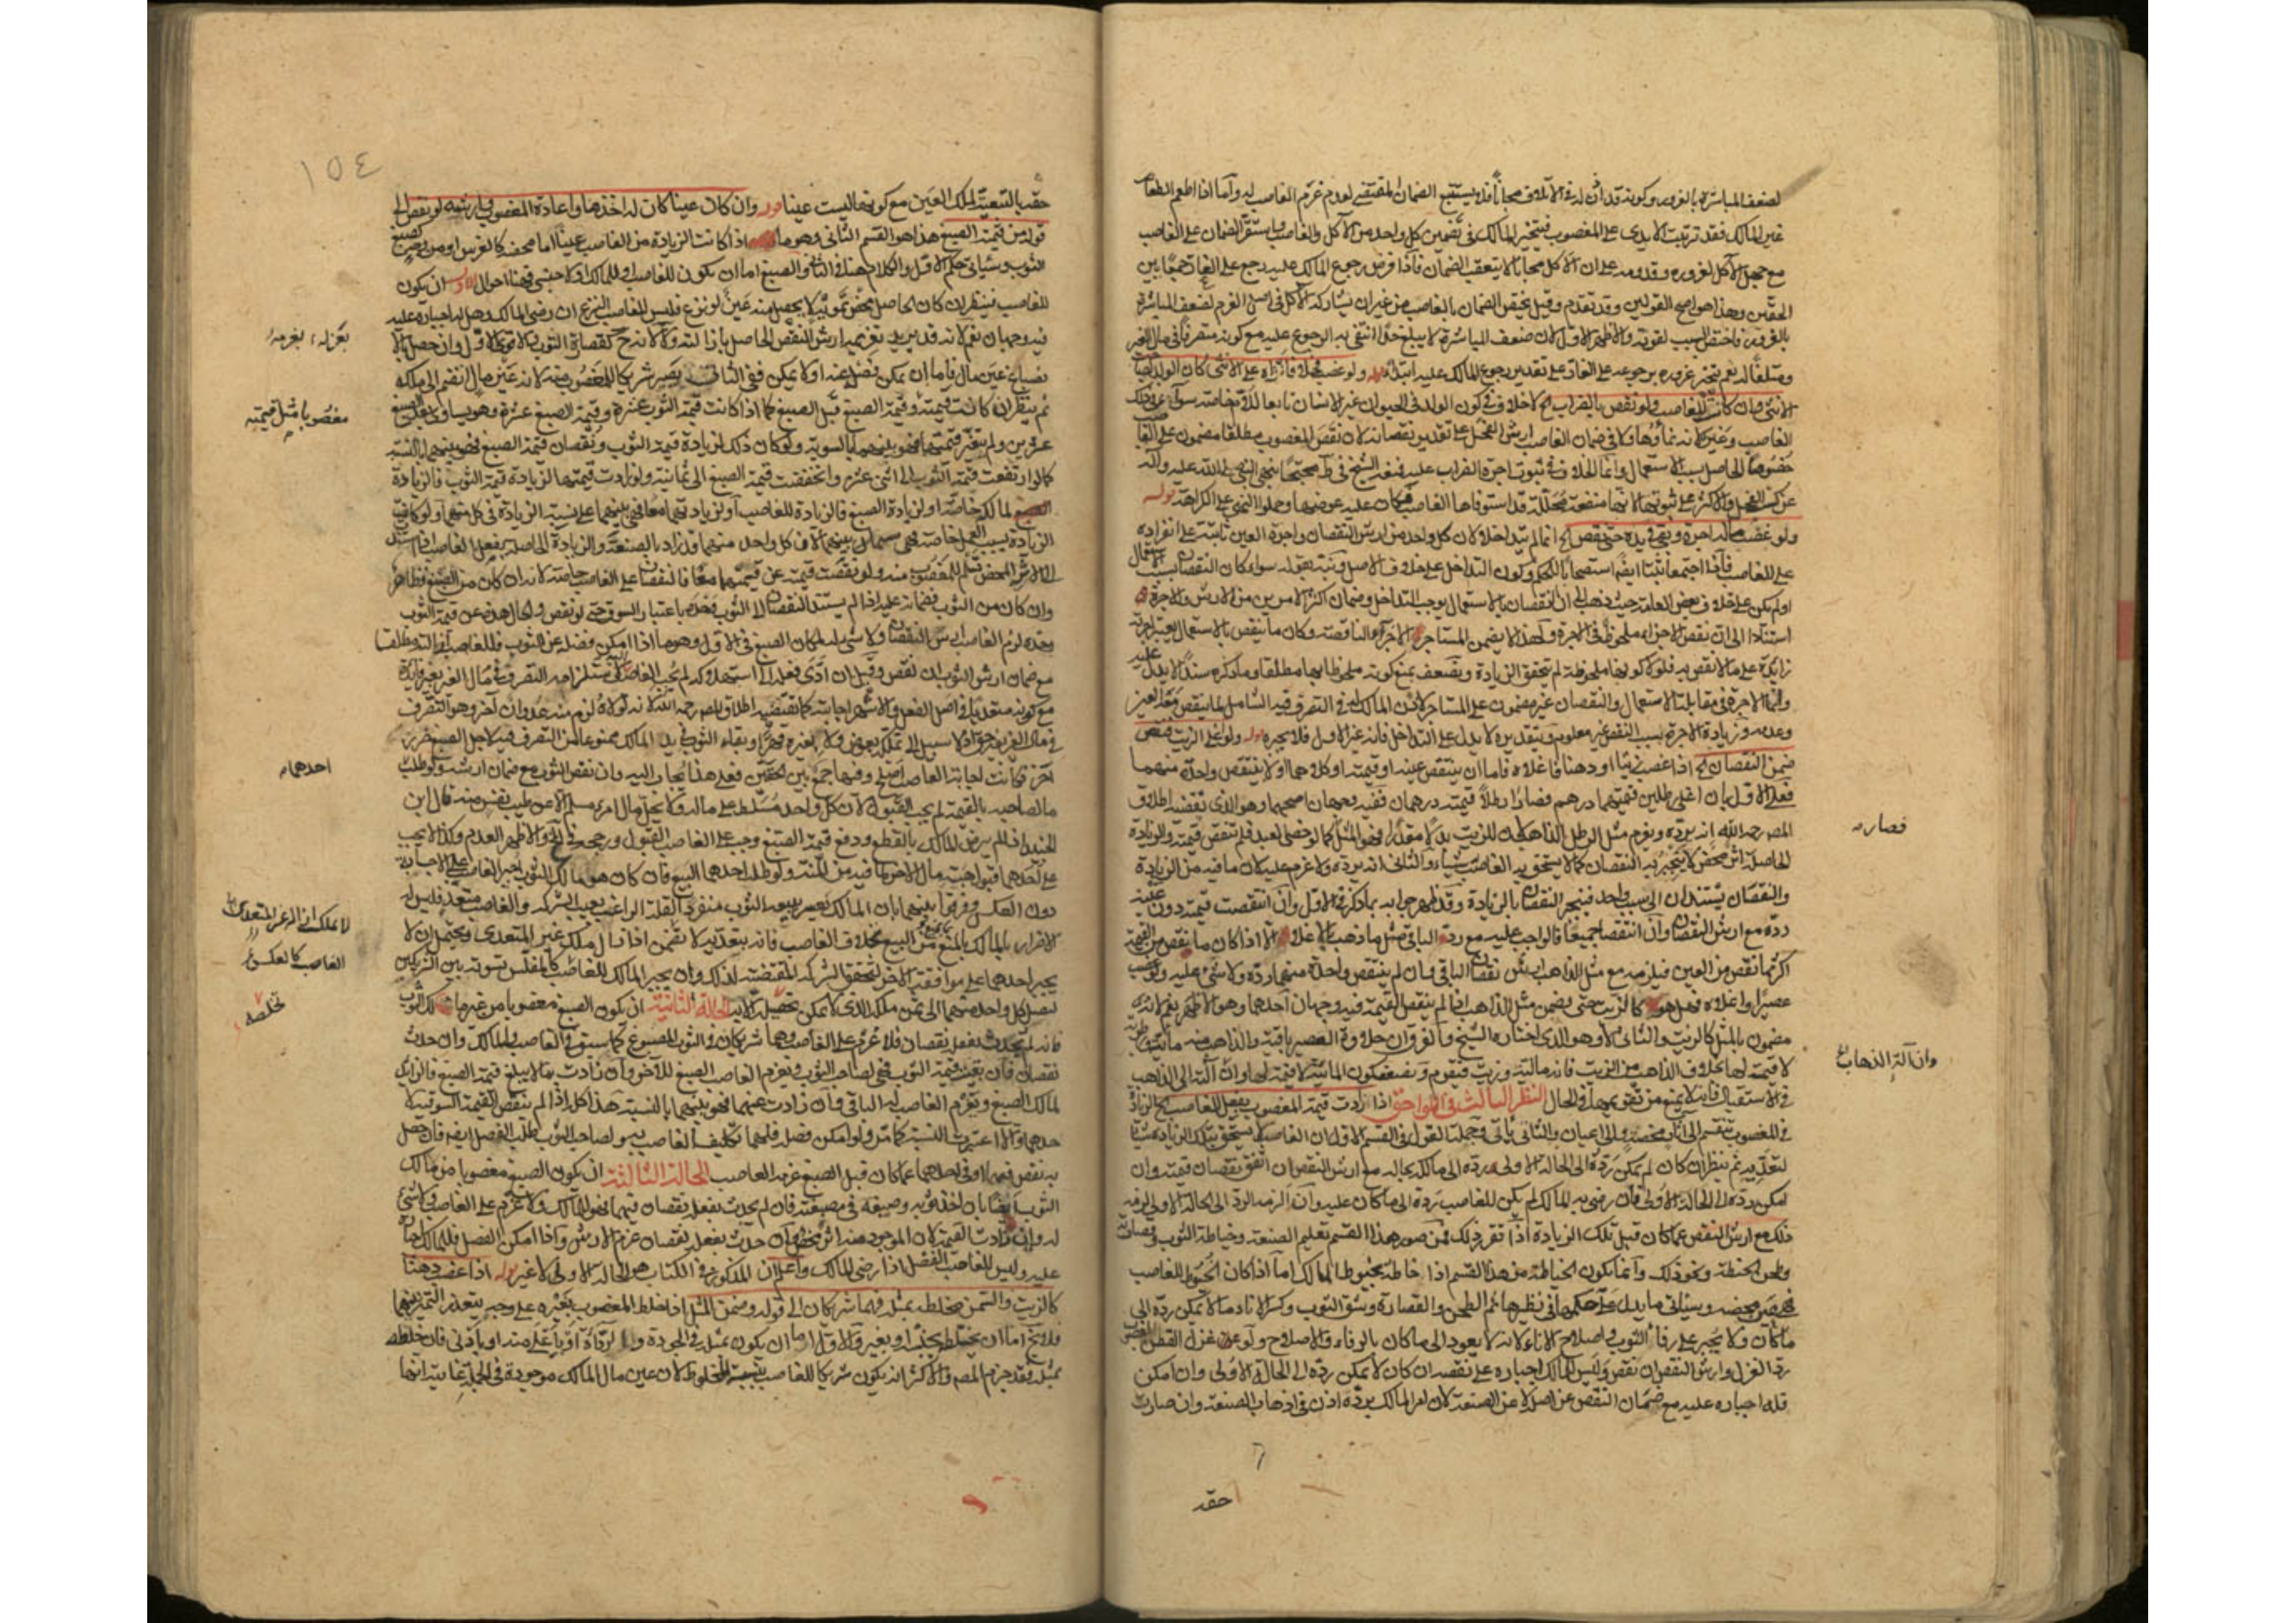 لضعف المباشرة بالغرور وكونه قد اذن له في الاتلاف مجانا فلا يستتبع الضمان المقتضي لعدم غرم الغاصب له واما اذا اطعم الطعام
غير المالك فقد ترتبت الايدي على المغصوب فيتخير المالك في تضمين كل واحد من الآكل والغاصب ويستقر الضمان على الغاصب
مع جهل الآكل لغروره وقدومه على ان الاكل مجانا لا يتعقب الضمان فاذا فرض رجوع المالك عليه رجع على الغار جمعا بين
الحقين وهذا هو اصح القولين وقد تقدم وقيل يختص الضمان بالغاصب من غير ان يشاركه الآكل في اصل الغرم لضعف المباشرة
بالغرور فاختص السبب لقوته والاظهر الاول لان ضعف المباشرة لا يبلغ حدا انتفى به الرجوع عليه مع كونه متصرفا في مال الغير
ومتلفا له نعم ينجبر غروره برجوعه على الغار على تقدير رجوع المالك عليه ابتداء قوله ولو غصب فحلا فانزاه على الانثى كان الولد لصاحب
الانثى وان كانت للغاصب ولو نقص بالضراب الخ لا خلاف في كون الولد في الحيوان غير الانسان تابعا للام خاصة سواء في ذلك
الغاصب وغيره لانه نماؤها ولا في ضمان الغاصب ارش الفحل على تقدير نقصانه لان نقص المغصوب مطلقا مضمون على الغاصب
خصوصا الحاصل بسبب الاستعمال وانما الخلاف في ثبوت اجرة الضراب عليه فمنعه الشيخ في ط محتجا بنهي النبي صلى الله عليه وآله
عن كسب الفحل والاكثر على ثبوتها لانها منفعة محللة قد استوفاها الغاصب فكان عليه عوضها وحملوا النهي على الكراهة قوله
ولو غصب ماله اجرة وبقي في يده حتى نقص الخ انما لم يتداخلا لان كل واحد من ارش النقصان واجرة العين ثابت على انفراده
على الغاصب فاذا اجتمعا ثبتا ايضا استصحابا للحكم وكون التداخل على خلاف الاصل ونبه بقوله سواء كان النقصان بسبب الاستعمال
او لم يكن على خلاف بعض العامة حيث ذهب الى ان النقصان بالاستعمال يوجب التداخل وضمان اكثر الامرين من الارش والاجرة
استنادا الى ان نقص الاجزاء ملحوظ في الاجرة ولهذا لا يضمن المستاجر الاجزاء الناقصة وكان ما ينقص بالاستعمال يعتبر اجرته
زايدة على ما لا ينقص به فلولا كونها ملحوظة لم يتحقق الزيادة ويضعف بمنع كونه ملحوظا بها مطلقا وما ذكره سندا لا يدل عليه
وانما الاجرة في مقابلة الاستعمال والنقصان غير مضمون على المستاجر لاذن المالك له في التصرف فيه الشامل لما ينقص معه العين
وعدمه وزيادة الاجرة بسبب النقص غير معلوم وبتقديره لا يدل على التداخل فانه غير الاول فلا يجبره قوله ولو اغلى الزيت فنقص
ضمن النقصان الخ اذا غصب زيتا او دهنا فاغلاه فاما ان ينتقص عينه او قيمته او كلاهما او لا ينتقص واحد منهما
فعلى الاول بان اغلى رطلين قيمتهما درهم فصارا رطلا قيمته درهمان ففيه وجهان اصحهما وهو الذي تقتضيه اطلاق
المص رحمه الله انه يرده ويغرم مثل الرطل الذاهب لان للزيت بدلا مقدرا فهو المثل كما لو خصى العبد فلم تنقص قيمته والزيادة
الحاصلة اثر محض لا ينجبر به النقصان كما لا يستحق به الغاصب شيئا والثاني انه يرده ولا غرم عليه لان ما فيه من الزيادة
والنقصان يستندان الى سبب واحد فينجبر النقصان بالزيادة وقد ظهر جوابه بما ذكر في الاول وان انتقصت قيمته دون عينه
رده مع ارش النقصان وان انتقصا جميعا فالواجب عليه مع رد الباقي مثل ما ذهب بالاغلاء الا اذا كان ما نقص من القيمة
اكثر مما نقص من العين فيلزمه مع مثل الذاهب ارش نقصان الباقي وان لم ينتقص واحد منهما رده ولا شيء عليه ولو غصب
عصيرا واغلاه فهل هو كالزيت حتى يضمن مثل الذاهب اذا لم ينقص القيمة فيه وجهان احدهما وهو الاظهر نعم لانه
مضمون بالمثل كالزيت والثاني لا وهو الذي اختاره الشيخ وان حلاوة العصير باقية والذاهب منه مائية ورطوبة
لا قيمة لها بخلاف الذاهب من الزيت فانه مالية وزيت فيقوم ويضعف بكون المائية لا قيمة لها وان آلت الى الذهاب
في الاستقبال فانه لا يمنع من تقويمها في الحال النظر الثالث في اللواحق اذا زادت قيمة المغصوب بفعل الغاصب الخ الزيادة
في المغصوب تنقسم الى آثار محضة والى اعيان والثاني ياتي وجملة القول في القسم الاول ان الغاصب لا يستحق بتلك الزيادة شيئا
لتعديه ثم ينظر ان كان لم يمكن رده الى الحالة الاولى رده الى مالكه بحاله مع ارش النقص ان اتفق نقصان قيمته وان
امكن رده الى الحالة الاولى فان رضي به المالك لم يكن للغاصب رده الى ما كان عليه وان الزمه الرد الى الحالة الاولى لزمه
ذلك مع ارش النقص عما كان قبل تلك الزيادة اذا تقرر ذلك فمن صور هذا القسم تعليم الصنعة وخياطة الثوب وقصارته
وطحن الحنطة ونحو ذلك وانما يكون الخياطة من هذا القسم اذا خاطه بخيوط المالك اما اذا كان الخيوط للغاصب
محضه وسياتي ما يدل على حكمها في نظيرها ثم الطحن والقصارة وشق الثوب وكسر الاناء مما لا يمكن رده الى
ما كان ولا يجبر على رفا الثوب واصلاح الاناء لانه لا يعود الى ما كان بالرفاء والاصلاح ولو غزل القطن المغصوب
رد الغزل وارش النقص ان نقص وليس للمالك اجباره على نقضه ان كان لا يمكن رده الى الحالة الاولى وان امكن
فله اجباره عليه مع ضمان النقص عن اصله لا عن الصنعة لان امر المالك برده اذن في اذهاب الصنعة وان صارت
فصارت
وان آلت الى الذهاب
حقه
١٥٤
حقه بالتبعية لملك العين مع كونها ليست عينا قوله وان كان عينا كان له اخذها واعادة المغصوب وارشه لو نقص الى
قوله من قيمة الصبغ هذا هو القسم الثاني وهو ما اذا كانت الزيادة من الغاصب عينا اما محضة كالغرس او من وجه كصبغ
الثوب وسياتي حكم الاول والكلام هنا في الثاني والصبغ اما ان يكون للغاصب او للمالك او لاجنبي فهنا احوال الاول ان يكون
للغاصب فينظر ان كان الحاصل محض تمويه لا يحصل منه عين لو نزع فليس للغاصب النزع ان رضي المالك وهل له اجباره عليه
فيه وجهان نعم لانه قد يريد تغريمه ارش النقص الحاصل بازالته ولا لانه ح كقصارة الثوب والاقوى الاول وان حصل بالا
نصباغ عين مال فاما ان يمكن فصله عنه او لا يمكن ففي الثاني يصير شريكا للمغصوب منه لانه عين مال انضم الى ملكه
ثم ينظر ان كانت قيمته وقيمة الصبغ قبل الصبغ كما اذا كانت قيمة الثوب عشرة وقيمة الصبغ عشرة وهو يساوي بعد الصبغ
عشرين ولم يتغير قيمتهما فهو بينهما بالسوية ولو كان ذلك لزيادة قيمة الثوب ونقصان قيمة الصبغ فهو بينهما بالنسبة
كما لو ارتفعت قيمة الثوب الى اثنى عشر وانخفضت قيمة الصبغ الى ثمانية ولو زادت قيمتهما لزيادة قيمة الثوب فالزيادة
لمالكه خاصة او لزيادة الصبغ فالزيادة للغاصب او لزيادتهما معا فهي بينهما على نسبة الزيادة في كل منهما ولو كانت
الزيادة بسبب العمل خاصة فهي بينهما لان كل واحد منهما قد زاد بالصنعة والزيادة الحاصلة بفعل الغاصب اذا استندت
الى الاثر المحض تسلم للمغصوب منه ولو نقصت قيمته عن قيمتهما معا فالنقصان على الغاصب خاصة لانه ان كان من الصبغ فظاهر
وان كان من الثوب فضمانه عليه اذا لم يستند النقصان الى الثوب باعتبار السوق حتى لو نقص والحال هذه عن قيمة الثوب
وحده لزم الغاصب ارش النقصان ولا شيء له لمكان الصبغ وفي الاول وهو ما اذا امكن فصله عن الثوب فللغاصب ازالته مطلقا
مع ضمان ارش الثوب ان نقص وقيل ان ادى فعله الى استهلاكه لم يجب الغاصب لاستلزامه التصرف في مال الغير بغير فايدة
مع كونه متعديا في اصل الفعل والاشهر اجابته كما تقتضيه اطلاق المص رحمه الله لانه لولاه لزم منه عدوان آخر وهو التصرف
في مال الغير اذ لا سبيل الى تملكه بعوض ولا بغيره قهرا وبقاء الثوب في يد المالك ممنوعا من التصرف فيه لاجل الصبغ ضرر
آخر فكانت اجابة الغاصب اصلح وفيها جمع بين الحقين فعلى هذا يجاب اليه وان نقص الثوب مع ضمان ارشه ولو طلب
مال صاحبه بالقيمة لم يجب القبول لان كل واحد مسلط على ماله ولا يحل مال امرء مسلم الا عن طيب نفس منه وقال ابن
الجنيد اذا لم يرض المالك بالقطع ودفع قيمة الصبغ وجب على الغاصب القبول ورجحه في لف والاظهر العدم وكذا لا يجب
على احدهما قبول هبة مال الآخر لما فيه من المنة ولو طلب احدهما البيع فان كان هو مالك الثوب اجبر الغاصب على الاجابة
دون العكس وفرقوا بينهما بان المالك يعسر بيعه الثوب منفردا لقلة الراغب بعيب الشركة والغاصب متعد فليس له
الاضرار بالمالك بالمنع من البيع بخلاف الغاصب فانه بتعديه لا يستحق ازالة ملك غير المتعدي ويحتمل ان لا
يجبر احدهما على موافقة الآخر لتحقق الشركة المقتضية لذلك وان يجبر المالك للغاصب كالمفلس تسوية بين الشريكين
ليصل كل واحد منهما الى ثمن ملكه الذي لا يمكن تحصيله الا به الحالة الثانية ان يكون الصبغ مغصوبا من غير مالك الثوب
فان لم يحدث بفعله نقصان فلا غرم على الغاصب وهما شريكان في الثوب المصبوغ كما سبق في الغاصب والمالك وان حدث
نقصان فان بقيت قيمة الثوب فهي لصاحب الثوب ويغرم الغاصب الصبغ للآخر وان زادت بما لا يبلغ قيمة الصبغ فالزايد
لمالك الصبغ ويغرم الغاصب له الباقي وان زادت عنهما فهو بينهما بالنسبة هذا كله اذا لم ينقص القيمة السوقية لا
حدهما والا اعتبرت النسبة كما مر ولو امكن فصله فلهما تكليف الغاصب به ولصاحب الثوب طلب الفصل ايضا فان حصل
به نقص فيهما او في احدهما عما كان قبل الصبغ غرمه الغاصب الحالة الثالثة ان يكون الصبغ مغصوبا من مالك
الثوب ايضا بان اخذ ثوبه وصبغه في مصبغته فان لم يحدث بفعله نقصان فيهما فهو للمالك ولا غرم على الغاصب ولا شيء
له وان زادت القيمة لان الموجود منه اثر محض وان حدث بفعله نقصان غرم الارش واذا امكن الفصل فللمالك اجباره
عليه وليس للغاصب الفصل اذا رضي المالك واعلم ان المذكور في الكتاب هو الحالة الاولى لا غير قوله اذا غصب دهنا
كالزيت والسمن فخلطه بمثله فهما شريكان الى قوله وضمن المثل اذا خلط المغصوب بغيره على وجه يتعذر التمييز بينهما
فلا يخ اما ان يختلط بجنسه او بغيره والاول اما ان يكون بمثله في الجودة والرداءة او باعلى منه او بادنى فان خلطه
بمثله فقد جزم المصنف والاكثر انه يكون شريكا للغاصب بنسبة المخلوط لان عين مال المالك موجودة في الجملة غايته انها
بعزله
مغصوبا مثل قيمته
احدهما
لا يملك ازالة غير المتعدي
الغاصب كالعكس